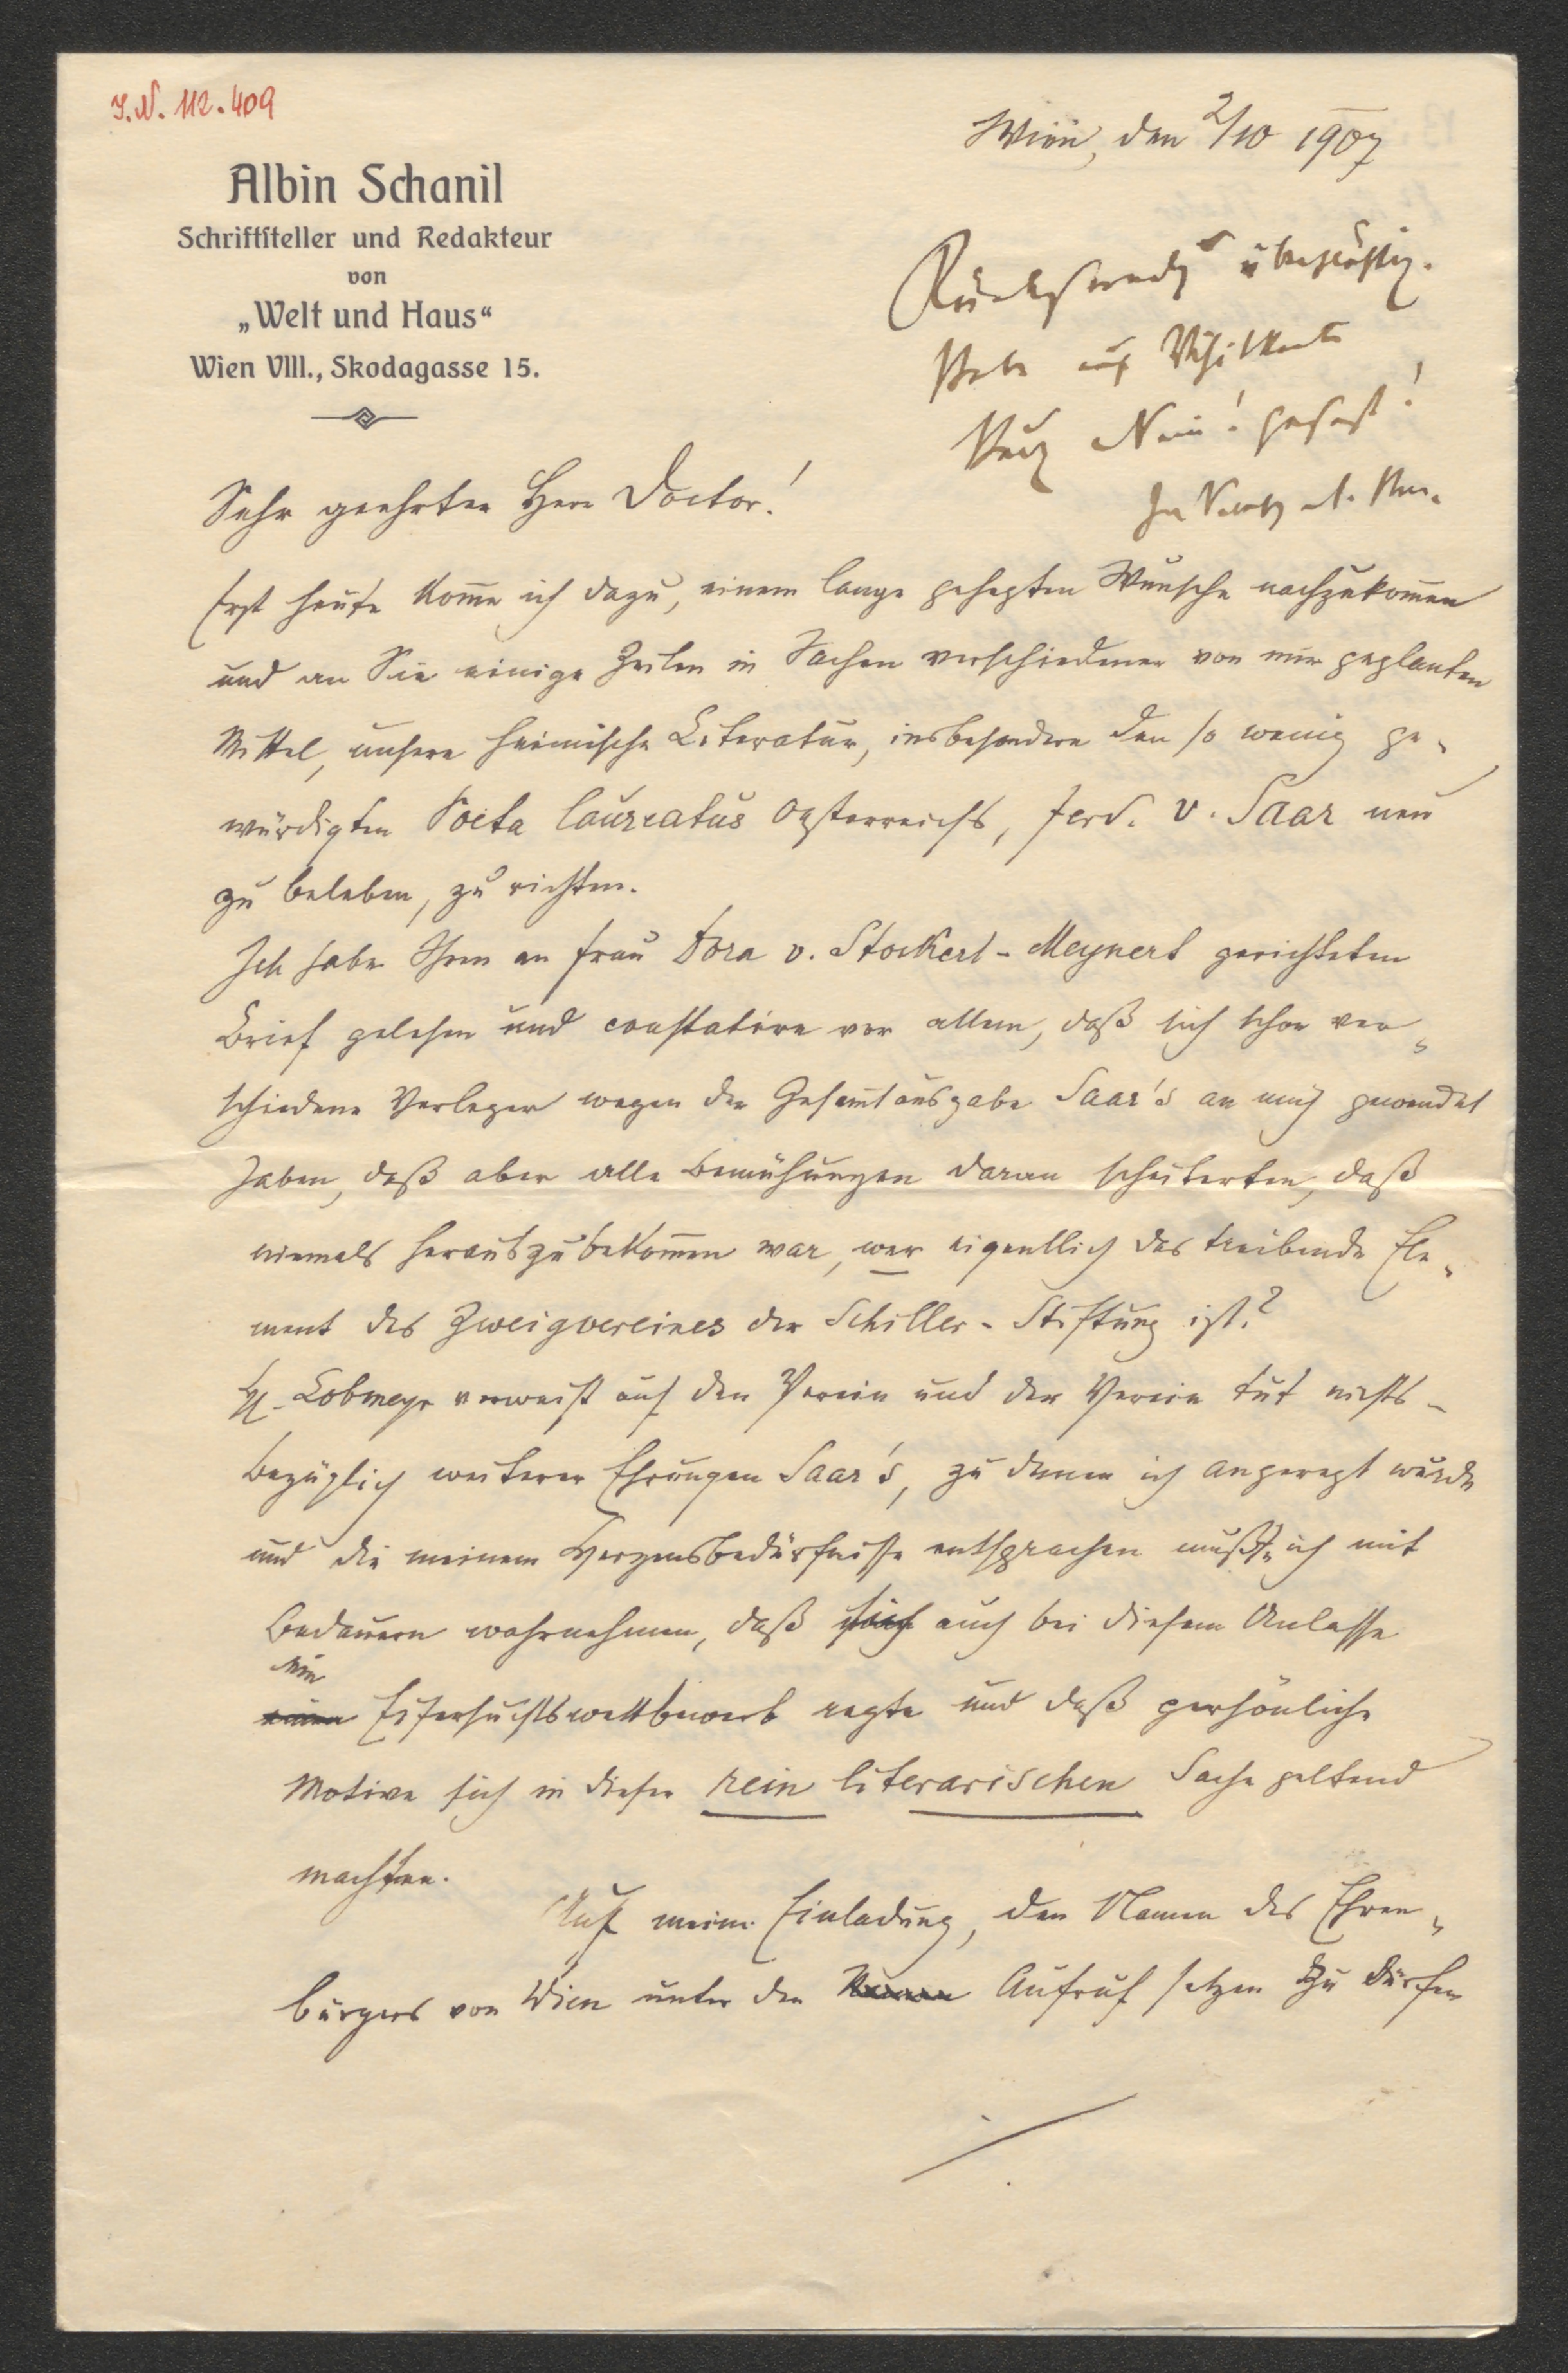 I.N. 112.409
Albin Schanil
Schriftsteller und Redakteur
von
„Welt und Haus“
Wien VIII., Skodagasse 15.
Wien, den 2/10 1907
überflüssig.
Habe auf Visitkarte
Nein! gesagt!
Sehr geehrter Herr Doctor!
Erst heute komme ich dazu, einem lange gehegten Wunsche nachzukommen
und an Sie einige Zeilen in Sachen verschiedener von mir geplanten
Mittel, unsere heimische Literatur, insbesondere den so wenig ge-
würdigten Poeta laureatus Oesterreichs, Ferd. v. Saar neu
zu beleben, zu richten.
Ich habe Ihren an Frau Dora v. Stockert-Meynert gerichteten
Brief gelesen und constatire vor allem, daß sich schon ver-
schiedene Verleger wegen der Gesamtausgabe Saar's an mich gewendet
haben, daß aber alle Bemühungen daran scheiterten, daß
niemals herauszubekommen war, wer eigentlich das treibende Ele-
ment des Zweigvereines der Schiller-Stiftung ist?
H. Lobmeyr verweist auf den Verein und der Verein tut nichts -
Bezüglich weiterer Ehrungen Saar's, zu denen ich angeregt wurde
und die meinem Herzensbedürfnisse entsprachen mußte ich mit
Bedauern wahrnehmen, daß sich auch bei diesem Anlasse
ein
einen Eifersuchtswettbewerb regte und daß persönliche
Motive sich in dieser rein literarischen Sache geltend
machten.
Auf meine Einladung, den Namen des Ehren-
bürgers von Wien unter den Aufruf setzen zu dürfen